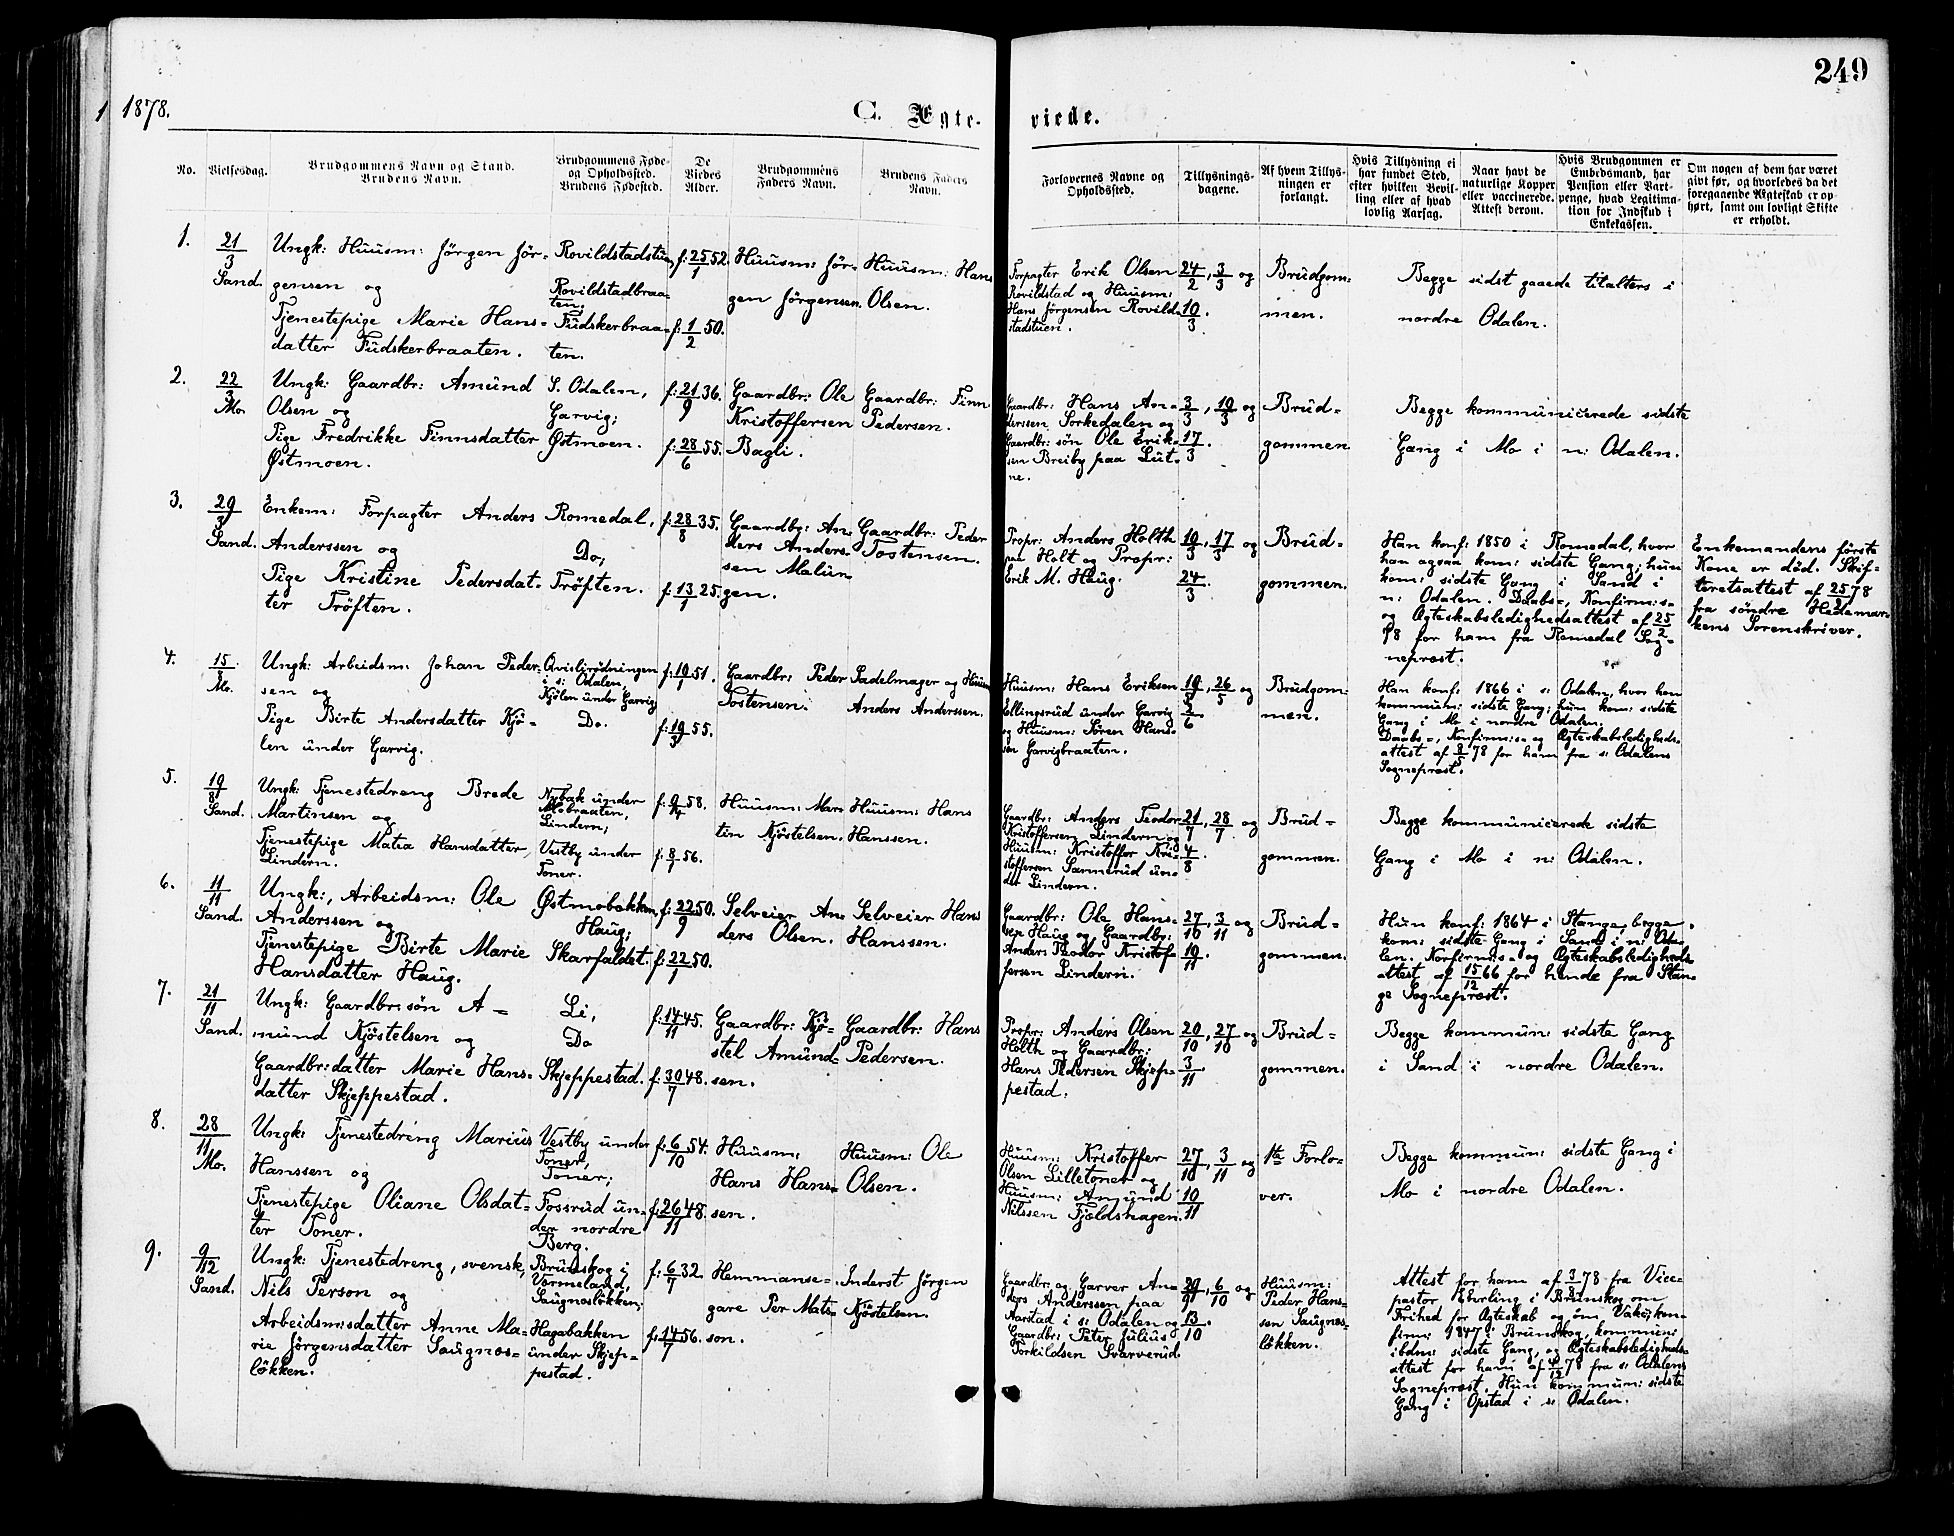 249
1878.
C. Ægte-
viede.
No.
Vielsesdag.
Brudgommens Navn og Stand.
Brudens Navn.
Brudgommens Føde-
og Opholdssted.
Brudens Fødested.
De
Viedes
Alder.
Brudgommens
Faders Navn.
Brudens Faders
Navn.
Forlovernes Navne og
Opholdssted.
Tillysnings-
dagene.
Af hvem Tillys-
ningen er
forlangt.
Hvis Tillysning ei
har fundet Sted,
efter hvilken Bevil-
ling eller af hvad
lovlig Aarsag.
Naar havt de
naturlige Kopper
eller vaccinerede.
Attest derom.
Hvis Brudgommen er
Embedsmand, har
Pension eller Vart-
penge, hvad Legitima-
tion for Indskud i
Enkekassen.
Om nogen af dem har været
givt før, og hvorledes da det
foregaaende Ægteskab er op-
hørt, samt om lovligt Skifte
er erholdt.
1.
21/3
Sand.
Ungk: Huusm: Jörgen Jör-
gensen og
Tjenestepige Marie Hans-
datter Fudskerbraaten.
Rovildstadstuen,
Rovildstadbraa-
ten;
Fudskerbraa-
ten.
f: 25/1 52.
f: 1/2 50.
Huusm: Jör-
gen Jörgensen.
Huusm: Hans
Olsen.
Forpagter Erik Olsen
Rovildstad og Huusm:
Hans Jörgensen Rovild-
stadstuen.
24/2, 3/3 og
10/3.
Brudgom-
men.
Begge sidst gaaede tilalters i
nordre Odalen.
2.
22/3
Mo.
Ungk: Gaardbr: Amund
Olsen og
Pige Fredrikke Finnsdatter
Østmoen.
S. Odalen,
Garvig;
Østmoen.
f: 21/9 36.
f: 28/6 55.
Gaardbr: Ole
Kristoffersen
Bagli.
Gaardbr: Finn
Pedersen.
Gaardbr: Hans An-
derssen Sorkedalen og
Gaardbr: søn Ole Erik-
sen Breiby paa Lut-
ne.
3/3, 10/3 og
17/3.
Brud-
gommen
Begge kommunicerede sidste
Gang i Mo i n: Odalen.
3.
29/3
Sand.
Enkem: Forpagter Anders
Anderssen og
Pige Kristine Pedersdat-
ter Tröften.
Romedal,
Do;
Tröften.
f: 28/8 35.
f: 13/1 25.
Gaardbr: An-
ders Anders-
sen Malun-
gen.
Gaardbr: Peder
Tostensen.
Propr: Anders Holth
paa Holt og Propr:
Erik M. Haug.
10/3, 17/3 og
24/3.
Brud-
gommen.
Han konf: 1850 i Romedal, hvor
han ogsaa kom: sidste Gang; hun
kom: sidste Gang i Sand i
n: Odalen. Daabs-, Konfirm:s-
og Ægteskabsledighedsattest af 25/2
78 for ham fra Romedal Sog-
neprest.
Enkemandens første
Kone er död. Skif-
teretsattest af 25/2 78
fra söndre Hedemar-
kens Sorenskriver.
4.
15/
Mo.
Ungk: Arbeidsm: Johan Peder-
sen og
Pige Birte Andersdatter Kjö-
len under Garvig.
Qvislirödningen
i s: Odalen,
Kjölen under Garvig
Do.
f: 19/1 51.
f: 19/3 55.
Gaardbr: Peder
Tostensen.
Sadelmager og Huusm
Anders Anderssen.
Huusm: Hans Eriksen
Ellingsrud under Garvig
og Huusm: Sören Hans-
sen Garvigbraaten.
19/5, 26/5 og
2/6
Brudgom-
men.
Han konf: 1866 i s: Odalen, hvor han
kommun: sidste Gang; hun kom: sidste
Gang i Mo i nordre Odalen.
Daabs-, Konfirm:s- og Ægteskabsledigheds-
attest af 8/5 78 for ham fra s: Odalens
Sogneprest.
5.
19/8
Sand.
Ungk: Tjenestedreng Brede
Martinsen og
Tjenestepige Matea Hansdatter,
Lindern.
Nybak under
Mobraaten,
Lindern;
Vestby under
Toner.
f: 9/4 58.
f: 8/7 56.
Huusm: Mar-
tin Kjöstelsen.
Huusm: Hans
Hanssen.
Gaardbr: Anders Teodor
Kristoffersen Lindern og
Huusm: Kristoffer Kri-
stoffersen Sannerud un-
der Lindern.
21/7, 28/7 og
4/8.
Brud-
gommen.
Begge kommunicerede sidste
Gang i Mo i n: Odalen.
6.
11/11
Sand.
Ungk:, Arbeidsm: Ole
Anderssen og
Tjenestepige Birte Marie
Hansdatter Haug.
Østmobakken,
Haug;
Skarfaldet.
f: 22/9 50.
f: 22/1 50.
Selveier An-
ders Olsen.
Selveier Hans
Hanssen.
Gaardbr: Ole Hans-
sen Haug og Gaardbr:
Anders Teodor Kristof-
fersen Lindern.
27/10, 3/11 og
10/11.
Brud-
gommen.
Hun konf: 1864 i Stange, begge
kom: sidste Gang i Sand i n: Oda-
len. Konfirm:s- og Ægteskabsledigheds-
attest af 15/12 66 for hende fra Stan-
ge Sogneprest.
7.
21/11
Sand.
Ungk: Gaardbr: søn A-
mund Kjöstelsen og
Gaardbr: datter Marie Hans-
datter Skjeppestad.
Li,
Do
Skjeppestad.
f: 14/11 45.
f: 30/7 48.
Gaardbr: Kjö-
stel Amund-
sen.
Gaardbr: Hans
Pedersen.
Propr: Anders Olsen
Holth og Gaardbr:
Hans Pedersen Skjep-
pestad.
20/10, 27/10 og
3/11.
Brud-
gommen.
Begge kommun: sidste Gang
i Sand i nordre Odalen.
8.
28/11
Mo.
Ungk: Tjenestedreng Marius
Hanssen og
Tjenestepige Oliane Olsdat-
ter Toner.
Vestby under
Toner,
Toner;
Fossrud un-
der nordre
Berg.
f: 6/10 54.
f: 26/11 48.
Huusm:
Hans Hans-
sen.
Huusm: Ole
Olsen.
Huusm: Kristoffer
Olsen Lilletoner og
Huusm: Amund
Nilssen Fjeldshagen.
27/10, 3/11 og
10/11
1ste Forlo-
ver.
Begge kommun: sidste Gang i
Mo i nordre Odalen.
9.
9/12
Sand.
Ungk: Tjenestedreng, svensk,
Nils Person og
Arbeidsm:sdatter Anne Ma-
rie Jörgensdatter Saugnes-
lökken.
Brunskog i
Vermeland,
Saugneslökken;
Hagabakken
under Skjep-
pestad.
f: 6/7 32.
f: 14/7 56.
Hemmanse-
gare Per Mats-
son.
Inderst Jörgen
Kjöstelsen.
Gaardbr: og Garver An-
ders Anderssen paa
Aarstad i s: Odalen og
Gaardbr: Peter Julius
Torkildsen Svarverud.
29/9, 6/10 og
13/10.
Huusm:
Peder Hans-
sen Saugnes-
lökken.
Attest for ham af 3/8 78 fra Vice-
pastor i Brunskog om
Frihed for Ægteskab og om
firm: 1847 i Brunskog, kommun:
ibdm: sidste Gang, og Ægteskabsledigheds-
attest for ham af 78 fra s: Odalens
Sogneprest. Hun kommun: sidste
Gang i Opstad i s: Odalen.